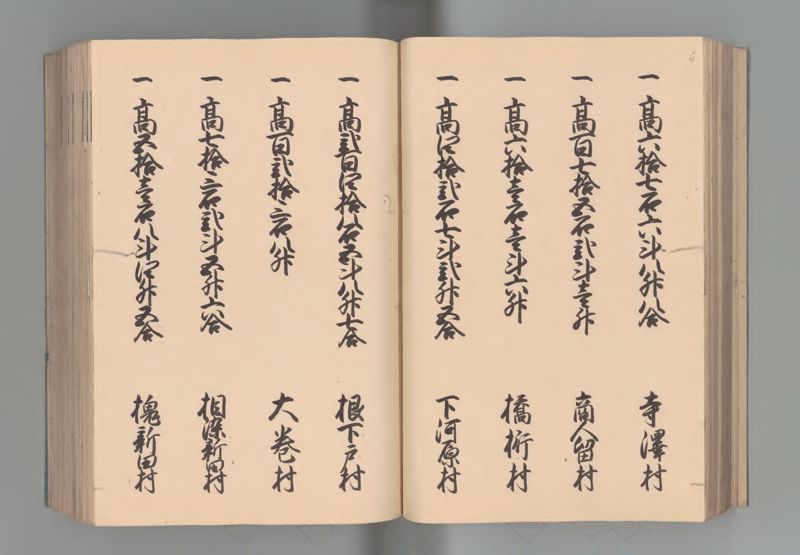 一 高六拾七石六斗八升八合 寺澤村
一 高百七拾五石弐斗壱升 商人留村
一 高六拾壱石壱斗六升 橋桁村
一 高四拾弐石七斗弐升五合 下河原村
一 高弐百四拾八石五斗八升七合 根下戸村
一 高百弐拾三石八升 大巻村
一 高七拾三石弐斗五升六合 相染新田村
一 高五拾壱石八斗四升五合 槐新田村